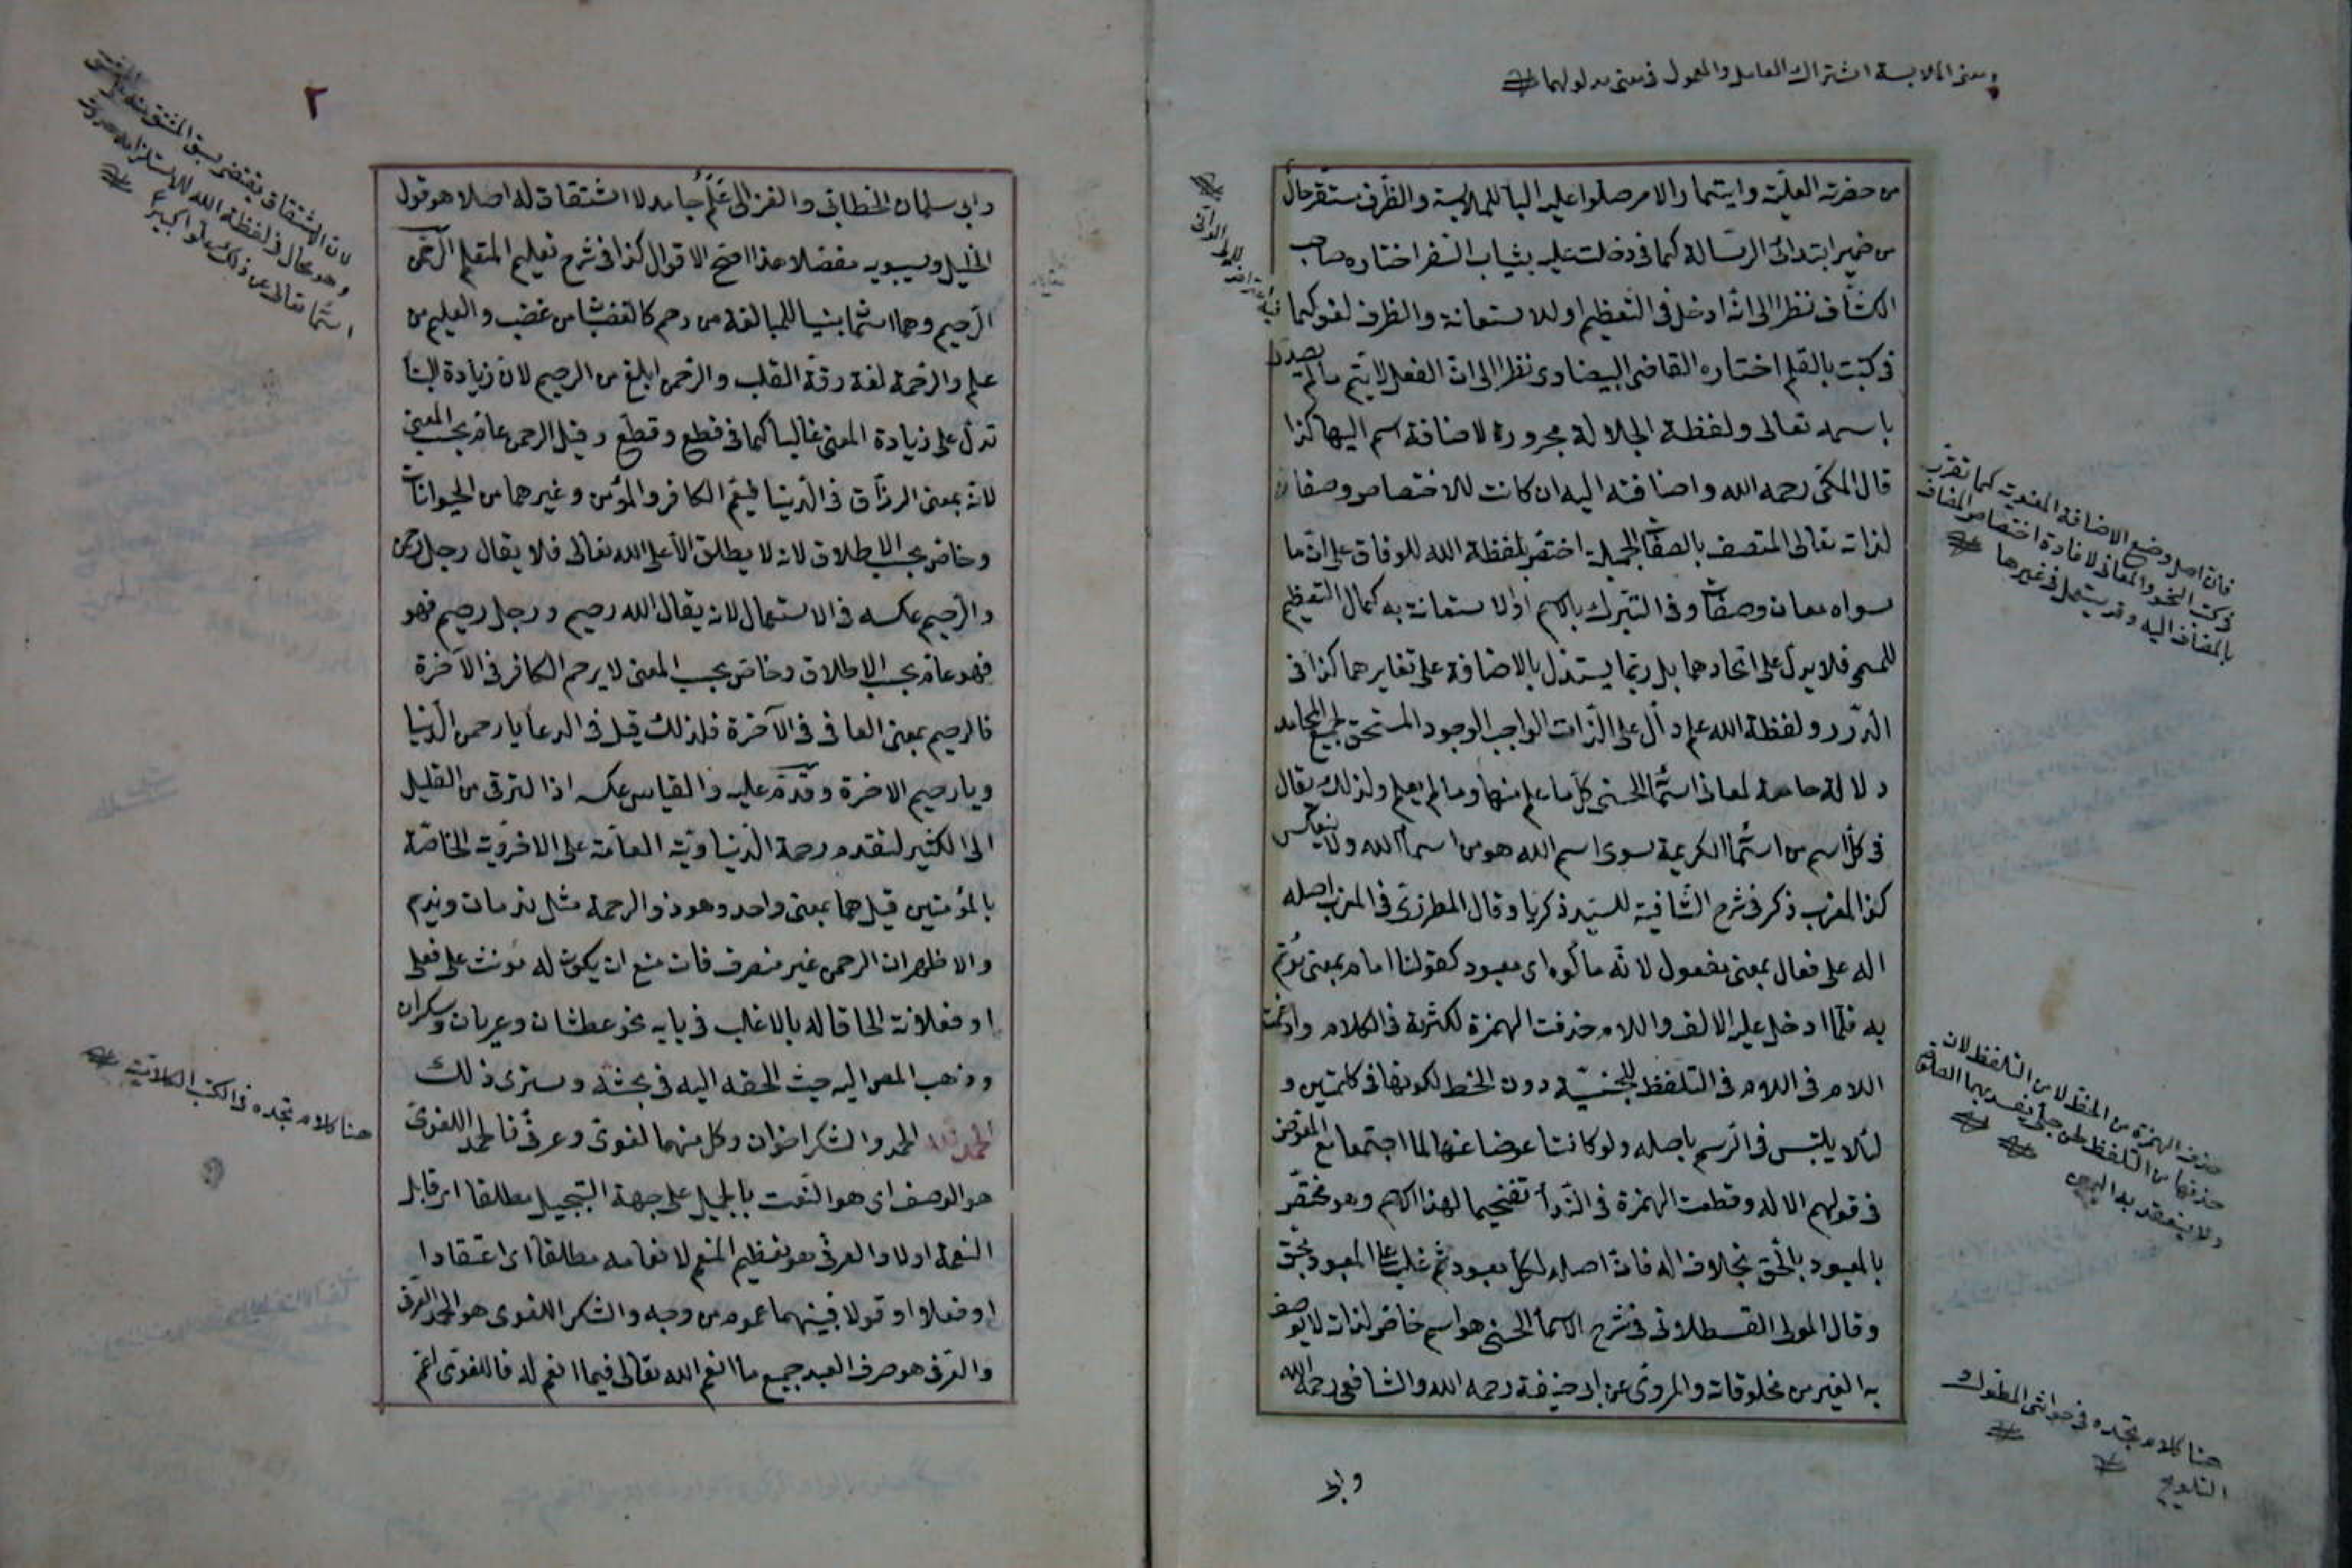 ومعنى الملابسة اشتراك العامل والمعمول فى معنى مدلولهما
من حضرته العليّة وايتمارا لامر صلوا عليه البا للملابسة والظرف مستقر حال
من ضمير ابتدائ الرسالة كما فى دخلت عليه بثياب السفر اختاره صاحب
الكشاف نظرا الى انه ادخل فى التعظيم او للاستعانة والظرف لغو كما
فى كتبت بالقلم اختاره القاضى البيضاوى نظرا الى ان الفعل لا يتم ما لم يصدر
باسمه تعالى ولفظة الجلالة مجرورة لاضافة اسم اليها كذا
قال المكى رحمه الله واضافته اليه ان كانت للاختصاص وصفا
لذاته تعالى المتصف بالصفات الجميلة اختص بلفظة الله للوفاق على ان ما
سواه معان وصفات وفى التبرك بالاسم او الاستعانة به كمال التعظيم
للمسمى فلا يدل على اتحادهما بل ربما يستدل بالاضافة على تغايرهما كذا فى
الدرر ولفظة الله علم دال على الذات الواجب الوجود المستحق لجميع المحامد
دلالة جامعة لمعانى اسمائه الحسنى كل ما علم منها وما لم يعلم ولذلك يقال
فى كل اسم من اسمائه الكريمة سوى اسم الله هو من اسماء الله ولا ينعكس
كذا المعرب ذكر فى شرح الشافية للسيد ذكريا وقال المطرزى فى المغرب اصله
اله على فعال بمعنى مفعول لانه مألوه اى معبود كقولنا امام بمعنى مؤتم
به فلما ادخل عليه الالف واللام حذفت الهمزة لكثرته فى الكلام وادغمت
اللام فى اللام فى التلفظ للجنسية دون الخط لكونها فى كلمتين و
لئلا يلتبس فى الرسم باصله ولو كانتا عوضا عنها لما اجتمعا مع المعوض
فى قولهم الاله وقطعت الهمزة فى النداء تفخيما لهذا الاسم وهو مختص
بالمعبود بالحق بخلاف اله فان اصله لكل معبود ثم غلب على المعبود بحق
وقال المولى القسطلانى فى شرح الاسماء الحسنى هو اسم خاص لذات لا يوصف
به الغير من مخلوقاته والمروى عن ابى حنيفة رحمه الله والشافعى رحمه الله
وابى
فان اصل وضع الاضافة المعنوية كما تقرر
فى كتب النحو والمعانى لافادة اختصاص المضاف
بالمضاف اليه وقد يستعمل فى غيرها
حذف الهمزة من الخط لا من التلفظ لان
حذفها من التلفظ لحن جلى يفسد بها الصلوة
ولا ينعقد به اليمين
هنا كلام تجده فى حواشى المطول و
التلويح
٢
وابى سليمان الخطابى والغزالى علم جامد لا اشتقاق له اصلا هو قول
الخليل وسيبويه مفضلا هذا اصح الاقوال كذا فى شرح تعليم المتعلم الرحمن
الرحيم وهما اسمان بنيا للمبالغة من رحم كالغضبان من غضب والعليم من
علم والرحمة لغة رقة القلب والرحمن ابلغ من الرحيم لان زيادة البناء
تدل على زيادة المعنى غالبا كما فى قطع وقطّع وقيل الرحمن عام بحسب المعنى
لانه بمعنى الرزاق فى الدنيا فيعم الكافر والمؤمن وغيرهما من الحيوانات
وخاص بحسب الاطلاق لانه لا يطلق الا على الله تعالى فلا يقال رجل رحمن
والرحيم عكسه فى الاستعمال لانه يقال الله رحيم ورجل رحيم فهو
فهو عام بحسب الاطلاق وخاص بحسب المعنى لا يرحم الكافر فى الآخرة
فالرحيم بمعنى العافى فى الآخرة فلذلك قيل فى الدعاء يا رحمن الدنيا
ويا رحيم الاخرة وقدّم عليه والقياس عكسه اذا الترقى من القليل
الى الكثير لتقدم رحمة الدنياوية العامة على الاخروية الخاصة
بالمؤمنين قيل هما بمعنى واحد وهو ذو الرحمة مثل ندمان ونديم
والاظهر ان الرحمن غير منصرف فان منع ان يكون له مؤنث على فعلى
او فعلانة الحاقا له بالاغلب فى بابه نحو عطشان وعريان وسكران
وذهب المص اليه حيث الحقه اليه فى بحثه وسترى ذلك
الحمد لله الحمد والشكر اخوان وكل منهما لغوى وعرفى فالحمد اللغوى
هو الوصف اى هو النعت بالجميل على جهة التبجيل مطلقا اى قابل
النعمة اولا والعرفى هو تعظيم المنعم لانعامه مطلقا اى اعتقادا
او فعلا او قولا فبينهما عموم من وجه والشكر اللغوى هو الحمد العرفى
والعرفى هو صرف العبد جميع ما انعم الله تعالى فيما انعم له فاللغوى اعم
لان الاشتقاق يقتضى سبق المشتق منه
وهو محال فى لفظة الله لاستلزامه حدوث
اسمائه تعالى عن ذلك علوا كبيرا
هنا كلام تجده فى الكتب الكلامية